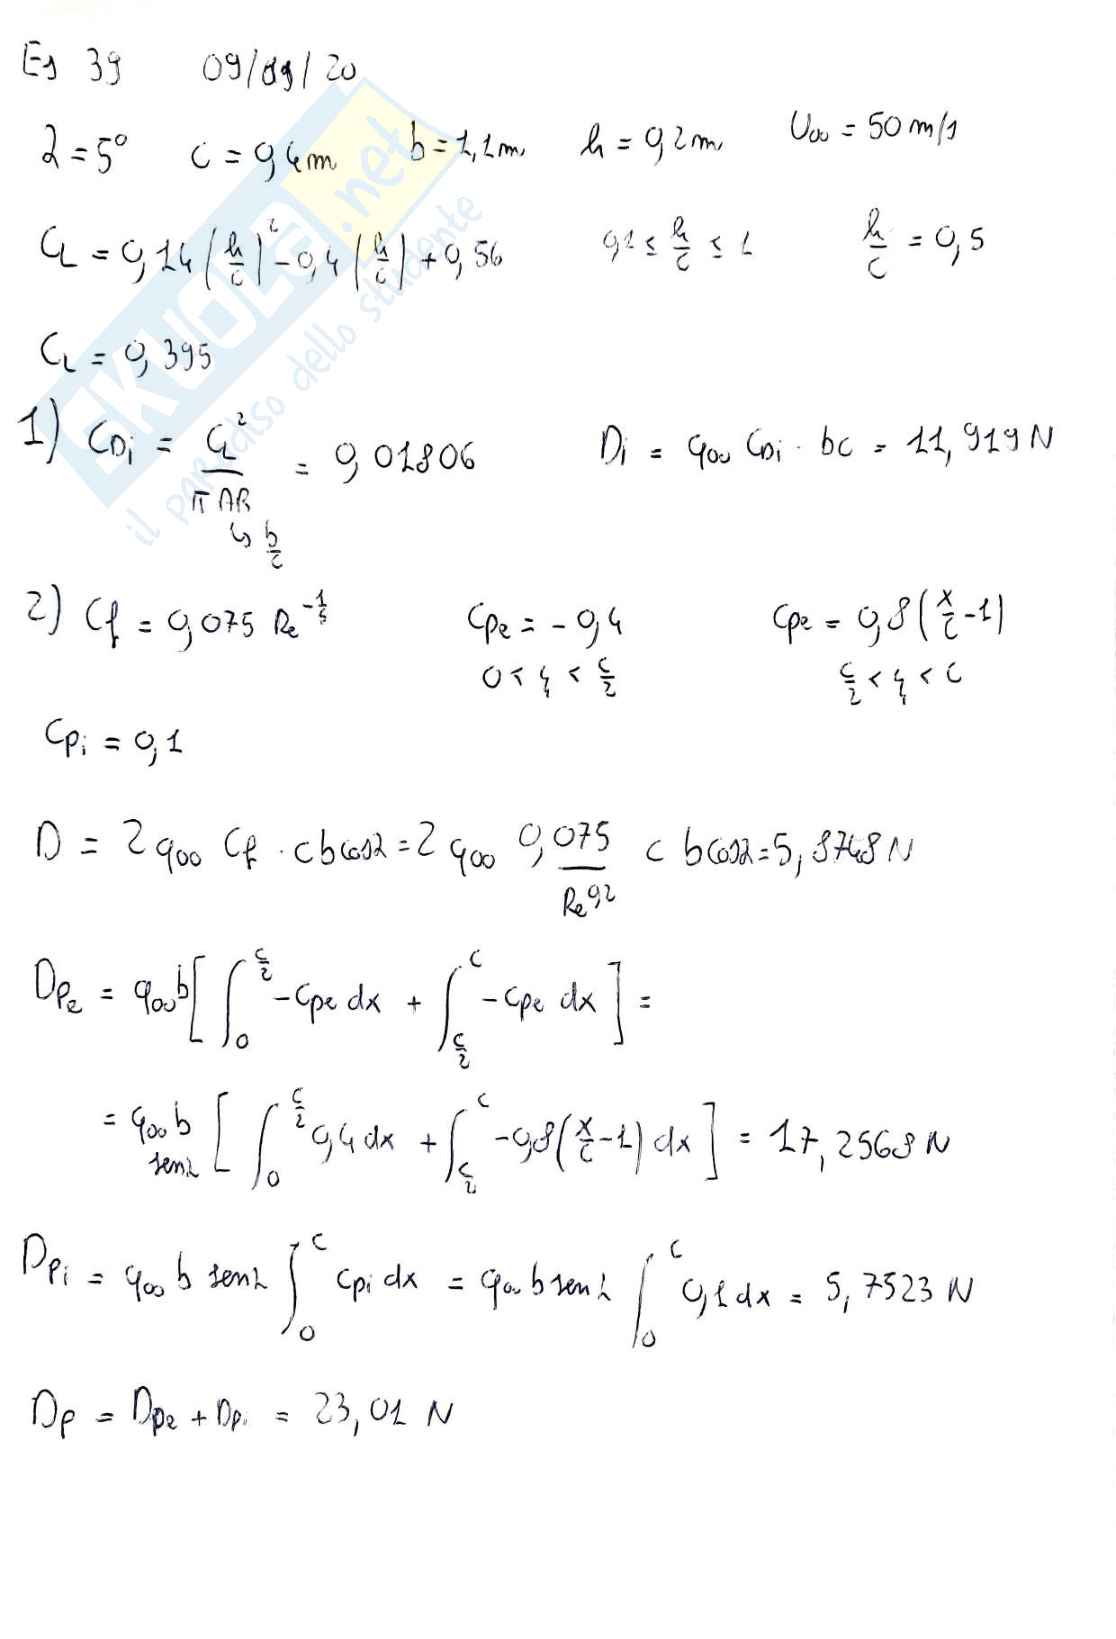 Es 39 09/09/20
α = 5° c = 0,4m b = 1,1m h = 0,2m U∞ = 50 m/s
CL = 0,14 (h/c)² - 0,4 (h/c) + 0,56 0,1 ≤ h/c ≤ 1 h/c = 0,5
CL = 0,395
1) CDi = CL²/(π AR) = 0,01806 Di = q∞ CDi · bc = 11,919 N
↳ b/c
2) Cf = 0,075 Re^(-1/5) Cpe = - 0,4 Cpe = 0,8 (x/c - 1)
0 < ξ < c/2 c/2 < ξ < c
Cpi = 0,1
D = 2 q∞ Cf · c b cosα = 2 q∞ 0,075/Re^0,2 c b cosα = 5,8748 N
Dpe = q∞ b [ ∫₀^(c/2) - Cpe dx + ∫_(c/2)^c - Cpe dx ] =
= q∞ b senα [ ∫₀^(c/2) 0,4 dx + ∫_(c/2)^c - 0,8 (x/c - 1) dx ] = 17,2568 N
Dpi = q∞ b senα ∫₀^c Cpi dx = q∞ b senα ∫₀^c 0,1 dx = 5,7523 N
Dp = Dpe + Dpi = 23,01 N
SKUOLA.net
il paradiso dello studente